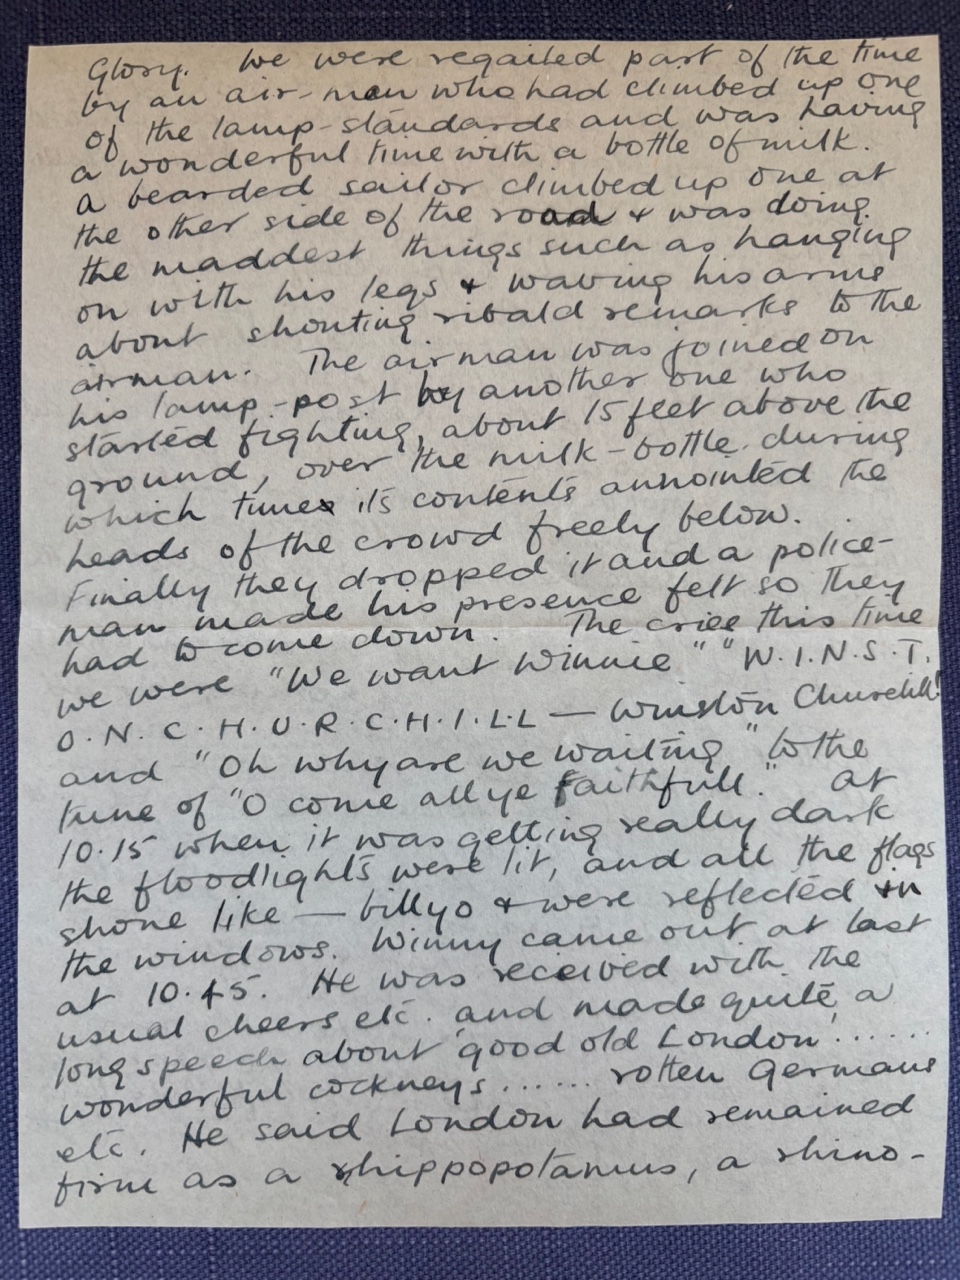 Glory. We were regailed part of the time
by an air-man who had climbed up one
of the lamp-standards and was having
a wonderful time with a bottle of milk.
A bearded sailor climbed up one at
the other side of the road & was doing
the maddest things such as hanging
on with his legs & waving his arms
about shouting ribald remarks to the
airman. The airman was joined on
his lamp-post by another one who
started fighting, about 15 feet above the
ground, over the milk-bottle during
which time its contents annointed the
heads of the crowd freely below.
Finally they dropped it and a police-
man made his presence felt so they
had to come down. The cries this time
we were "We want Winnie" "W.I.N.S.T.
O.N. C.H.U.R.C.H.I.L.L — Winston Churchill!
and "Oh why are we waiting" to the
tune of "O come all ye faithfull." At
10.15 when it was getting really dark
the floodlights were lit, and all the flags
shone like — billyo & were reflected in
the windows. Winny came out at last
at 10.45. He was received with the
usual cheers etc. and made quite a
long speech about 'good old London'......
wonderful cockneys...... rotten Germans
etc. He said London had remained
firm as a rhippopotamus, a rhino-